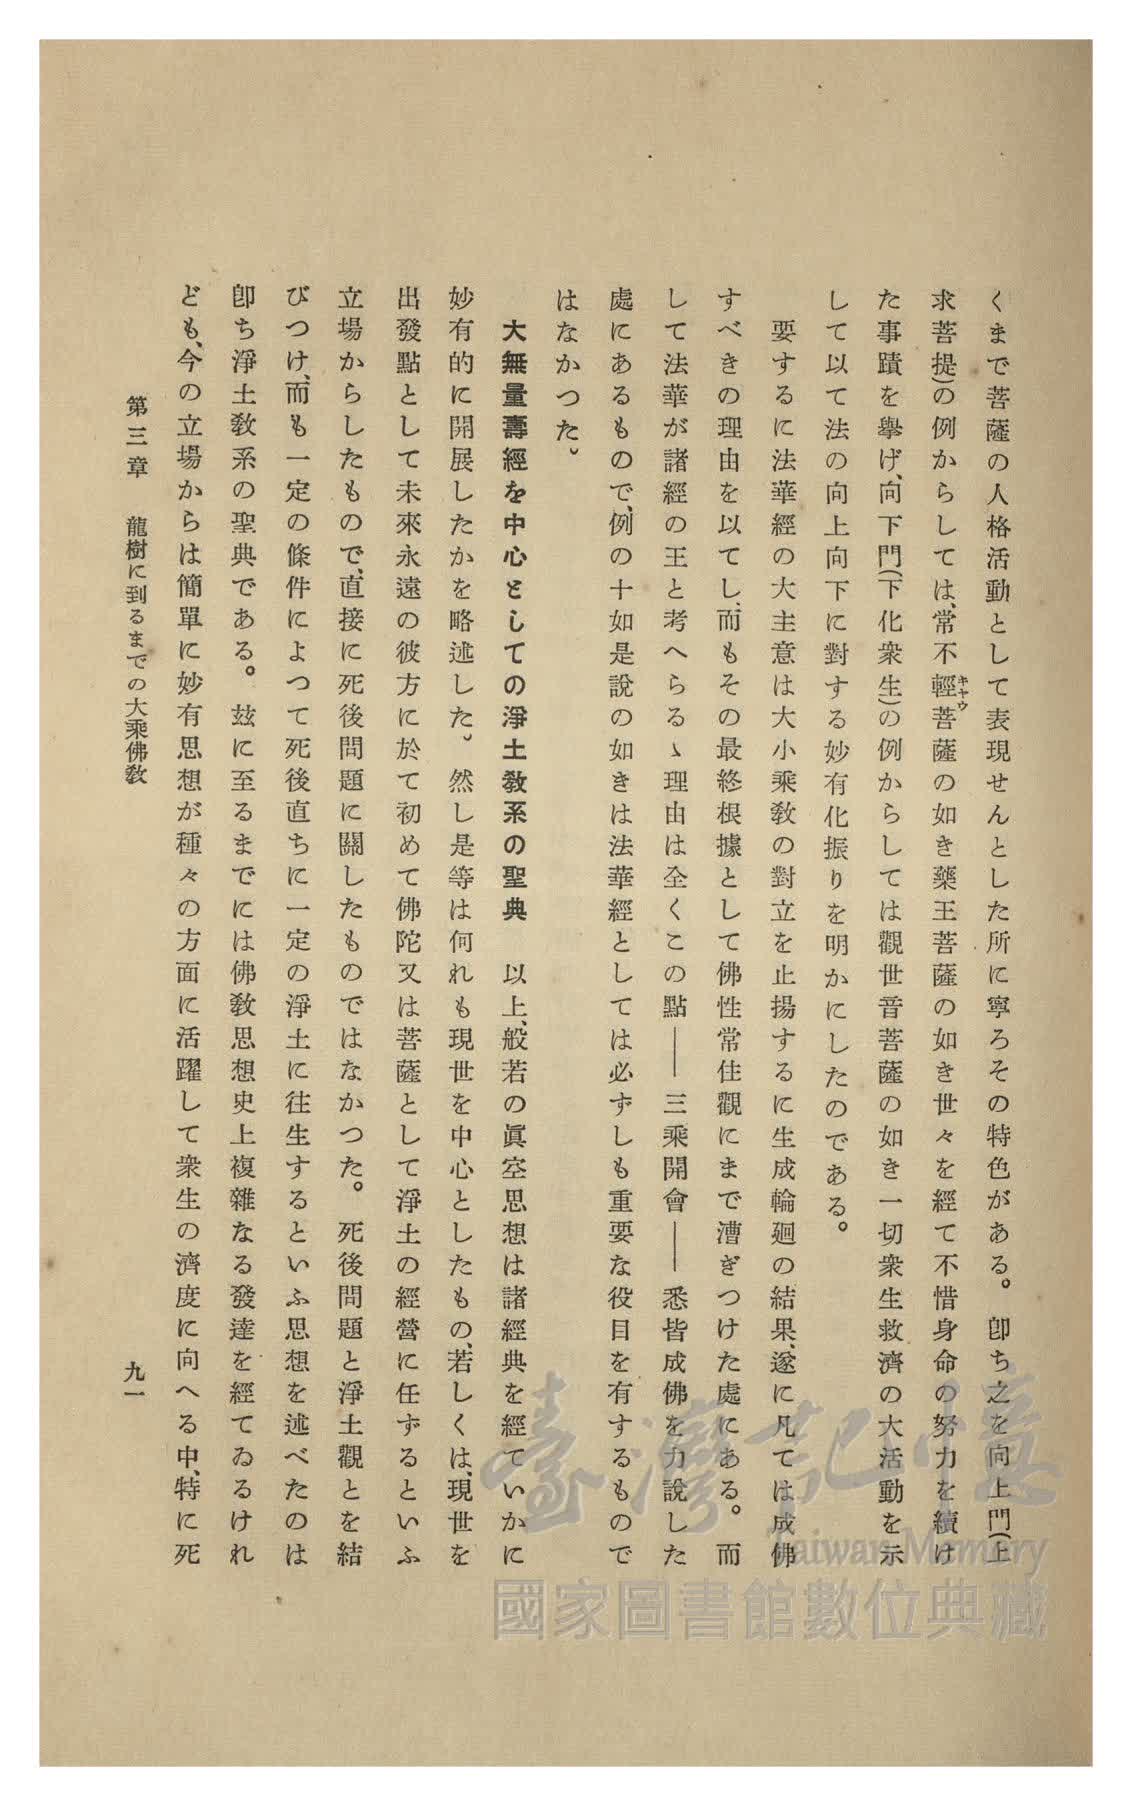 くまで菩薩の人格活動として表現せんとした所に寧ろその特色がある。卽ち之を向上門(上
求菩提)の例からしては、常不輕菩薩の如き藥王菩薩の如き世々を經て不惜身命の努力を續け
キヤウ
た事蹟を擧げ、向下門(下化衆生)の例からしては觀世音菩薩の如き一切衆生救濟の大活動を示
して以て法の向上向下に對する妙有化振りを明かにしたのである。
要するに法華經の大主意は大小乘教の對立を止揚するに生成輪廻の結果、遂に凡ては成佛
すべきの理由を以てし、而もその最終根據として佛性常住觀にまで漕ぎつけた處にある。而
して法華が諸經の王と考へらるゝ理由は全くこの點――三乘開會――悉皆成佛を力說した
處にあるもので、例の十如是說の如きは法華經としては必ずしも重要な役目を有するもので
はなかつた。
大無量壽經を中心としての淨土教系の聖典　以上、般若の眞空思想は諸經典を經ていかに
妙有的に開展したかを略述した。然し是等は何れも現世を中心としたもの、若しくは、現世を
出發點として未來永遠の彼方に於て初めて佛陀又は菩薩として淨土の經營に任ずるといふ
立場からしたもので、直接に死後問題に關したものではなかつた。死後問題と淨土觀とを結
びつけ、而も一定の條件によつて死後直ちに一定の淨土に往生するといふ思想を述べたのは
卽ち淨土教系の聖典である。玆に至るまでには佛教思想史上複雜なる發達を經てゐるけれ
ども、今の立場からは簡單に妙有思想が種々の方面に活躍して衆生の濟度に向へる中、特に死
第三章　龍樹に到るまでの大乘佛教
九一
臺灣記憶
Taiwan Memory
國家圖書館數位典藏